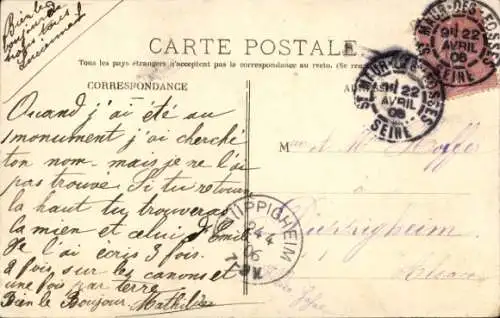 Bien le
bonjour de
nous tous
CARTE POSTALE
Tous les pays étrangers n'acceptent pas la correspondance au recto. (Se rens
CORRESPONDANCE
ADRESSE
ST MAUR-DES-FOSSÉS
22
AVRIL
06
SEINE
ST MAUR-DES-FOSSÉS
22
AVRIL
06
SEINE
Quand j'ai été au
monument j'ai cherché
ton nom mais je ne l'ai
pas trouvé. Si tu retourn
la haut tu trouveras
la mien et celui d'Emile
Je l'ai écris 3 fois.
2 fois sur les canons et
une fois par terre
Bien le Bonjour. Mathilde
M et M Hoffer
à
Duppigheim
Alsace
DÜPPIGHEIM
24 4
06